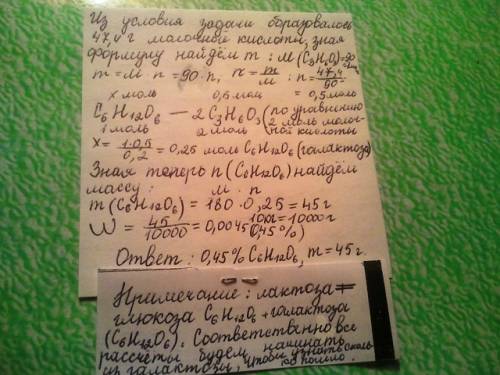 Из условия задачи образовалось
47,4 г молочной кислоты, зная
формулу найдём m : M(C₃H₆O₃)=90
m = M · n = 90·n, n = m/M ; n = 47,4/90 =
x моль 0,5 моль = 0,5 моль
C₆H₁₂O₆ — 2C₃H₆O₃ (по уравнению
1 моль 2 моль 2 моль молоч-
ной кислоты
x = 1·0,5/0,2 = 0,25 моль C₆H₁₂O₆ (галактоза)
Зная теперь n (C₆H₁₂O₆) найдём
массу : M · n
m (C₆H₁₂O₆) = 180·0,25 = 45 г
10кг = 10000 г
W = 45/10000 = 0,0045 (0,45%)
Ответ : 0,45% C₆H₁₂O₆, m = 45 г.
Примечание : лактоза =
глюкоза C₆H₁₂O₆ + галактоза
(C₆H₁₂O₆). Соответственно все
рассчёты будем начинать
из галактозы, чтобы узнать сколь
ко пошло.